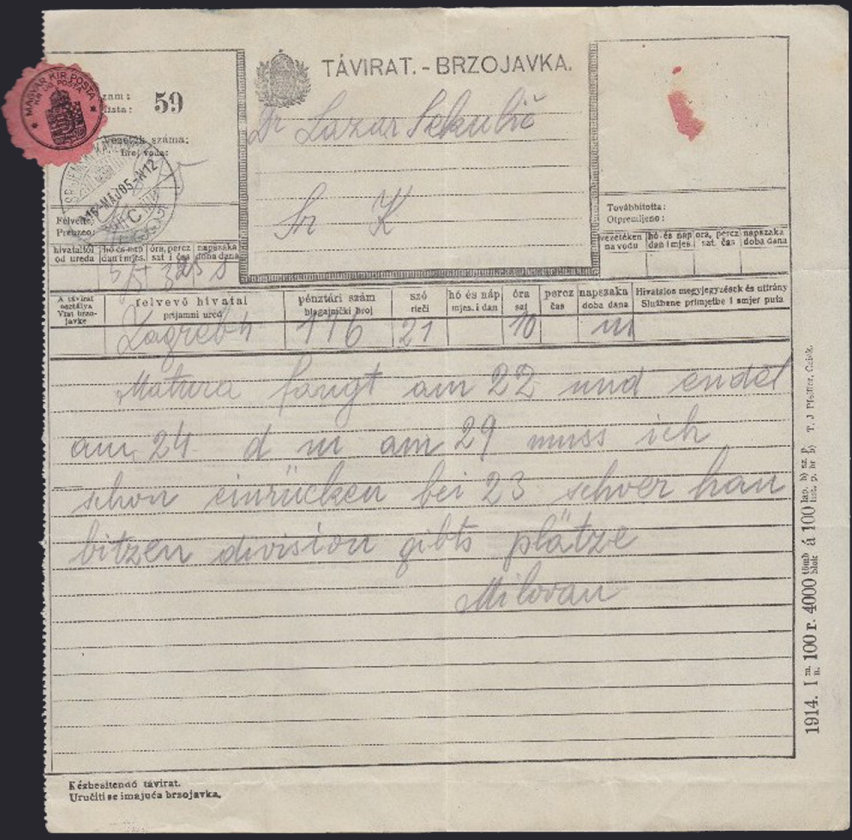 TÁVIRAT. - BRZOJAVKA.
MAGYAR KIR. POSTA
59
Vezeték száma:
Broj voda:
Dr Lazar Sekulić
Sr K
Felvéte
Preuzeo:
Továbbította:
Otpremljeno:
hivataltól hó és nap óra, percz napszaka
od ureda dan i mjes. sat i čas doba dana
vezetéken hó és nap óra, percz napszaka
na vodu dan i mjes. sat. čas doba dana
A távirat osztálya felvevő hivatal pénztári szám szó hó és nap óra percz napszaka Hivatalos megjegyzések és utirány
Vrst brzojavke prijamni ured blagajnički broj rieči mjes. i dan sat čas doba dana Službene primjetbe i smjer puta
Zagreb 4 116 21 10 m
Matura fangt am 22 und endet
am 24 d m am 29 muss ich
schon einrücken bei 23 schver hau
bitzen division gibts plätze
Milovan
Kézbesítendő távirat.
Uručiti se imajuća brzojavka.
1914. I 100 r. 4000 tömb blok á 100 T. J.